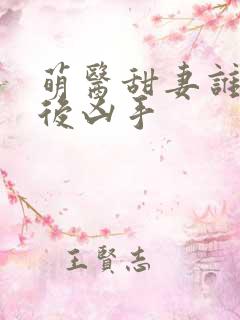 萌醫甜妻誰
後凶手
王賢志